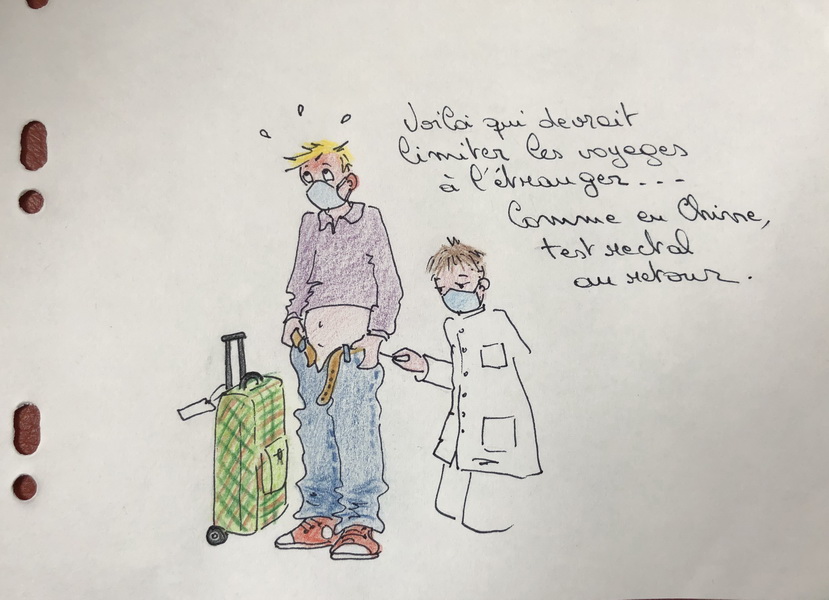 Voilà qui devrait
limiter les voyages
à l'étranger...
Comme en Chine,
test rectal
au retour.